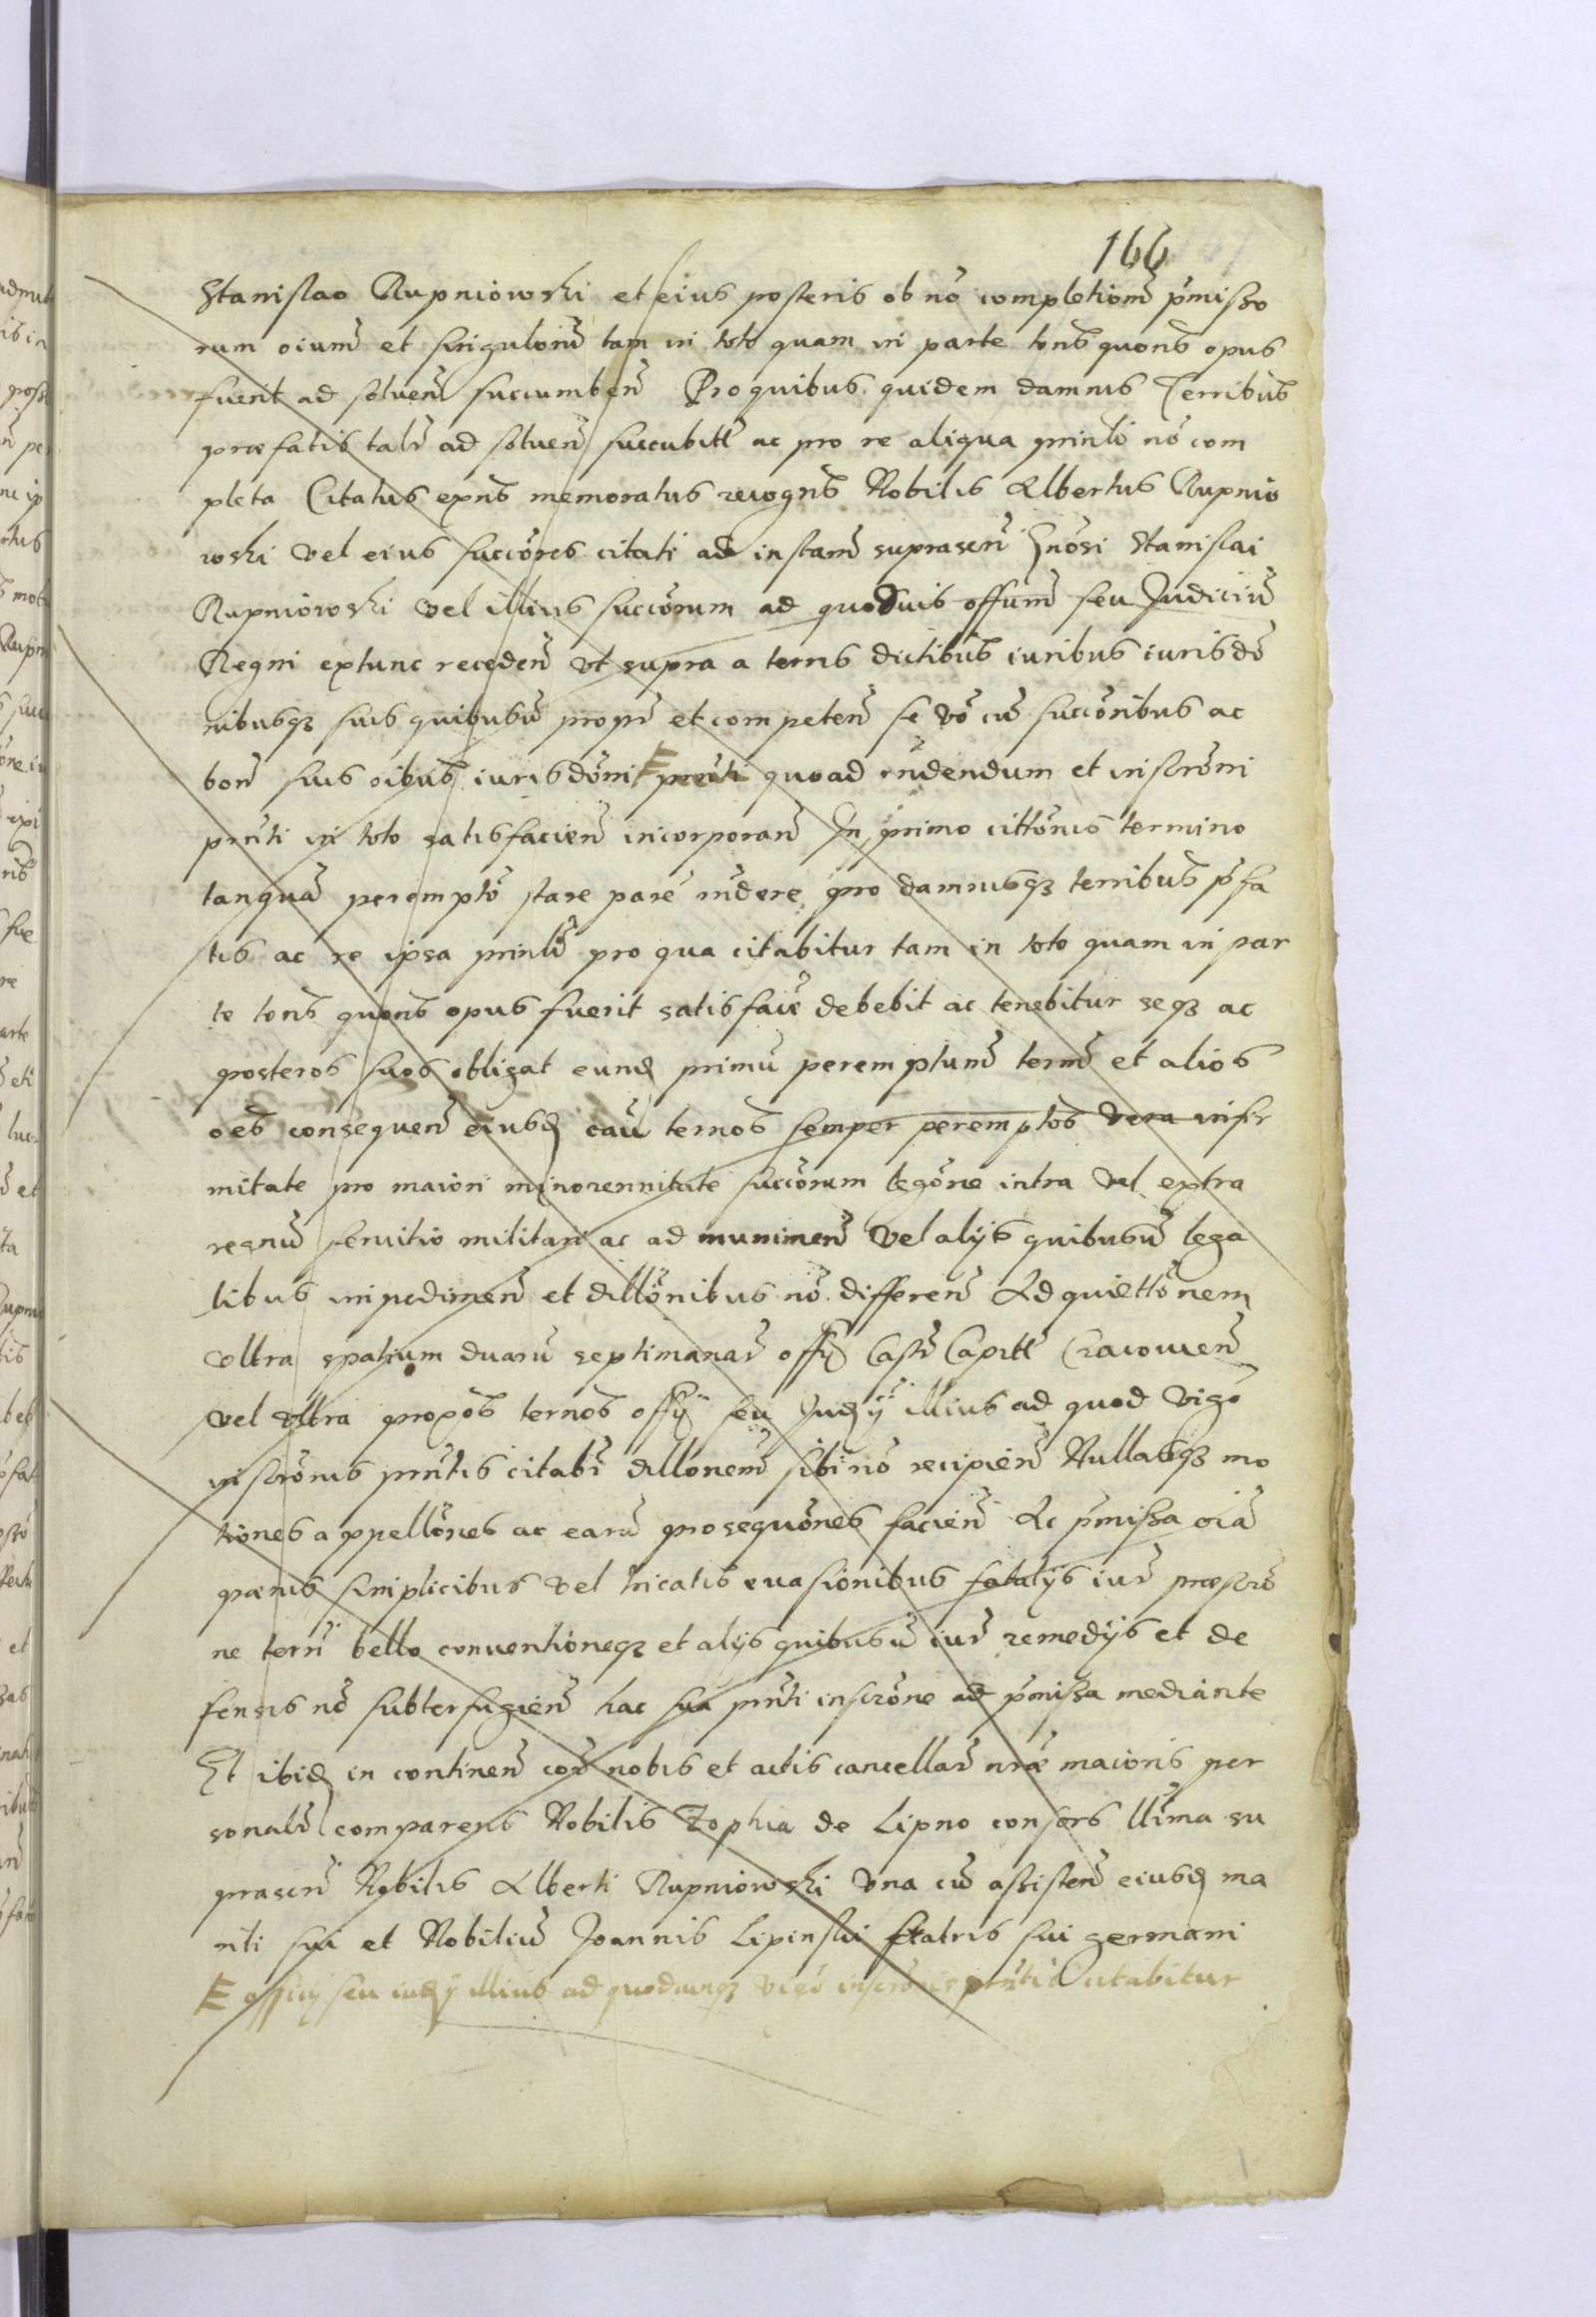 166
Stanislao Rupniowski et eius posteris ob nō completionē p̄misso
rum oiūm et singulorū tam in toto quam in parte totiēs quotiēs opus
fuerit ad soluen̄ succumben̄ Pro quibus quidem damnis Terribus̄
præfatis talr̄ ad soluen̄ succubitis ac pro re aliqua prinlī nō com
pleta Citatus exn̄s memoratus recogn̄s Nobilis Albertus Rupnio
wski vel eius succōres citati ad instan̄ suprascrī Gnōsi Stanislai
Rupniowski vel illius succōrum ad quoduis offūm seu Judiciū
Regni extunc receden̄ vt supra a terris dictibus̄ iuribus iurisdō
nibusqz suis quibusū propr̄ et competen̄ se vō cū succōribus ac
bon̄ suis oibus̄ iurisdōni quoad rn̄dendum et inscrōni
prn̄ti in toto satisfacien̄ incorporan̄ In primo cittōnis termino
tanquā peremptō stare parē rn̄dere pro damnisqz terribus̄ p̄fa
tis ac re ipsa prinlī pro qua citabitur tam in toto quam in par
te totn̄s quotn̄s opus fuerit satisfacē debebit ac tenebitur seqz ac
posteros suos obligat eund primū peremptum̄ term̄ et alios
oēs consequen̄ eiusd caū ternos̄ semper peremptōs vera infir
mitate pro maiori minorennitate succōrum legōne intra vel extra
regnū seruitio militari ac ad munimen̄ vel alijs quibusū lega
libus impedimen̄ et dillōnibus nō differen̄ Ad quiettōnem
vltra spatium duarū septimanar̄ offi Castr̄ Capitl̄ Cracouien̄
vel vltra propōs ternos̄ offij seu Judij illius ad quod vigō
inscrōnis prn̄tis citabr̄ dillōnem̄ sibi nō recipien̄ Nullasqz mo
tiones appellōnes ac earū prosequōnes facien̄ Ac p̄missa oiā
pænis simplicibus vel tricatis euasionibus fatalijs iur̄ præscrō
ne terrī bello conuentioneqz et alijs quibusū iur̄ remedijs et de
fensis nō subterfugien̄ hac sua prn̄ti inscrōne ad p̄missa mediante
Et ibid in continen̄ cor̄ nobis et actis cancellar̄ nrǣ maioris per
sonalr̄ comparens Nobilis Zophia de Lipno consors llīma su
prascrī Nobilis Alberti Rupniowski vna cū assisten̄ eiusd ma
riti sui et Nobiliū Joannis Lipinski fratris sui germani
offij seu iudij illius ad quodcunqz vigō inscrōnis prn̄tis citabitur